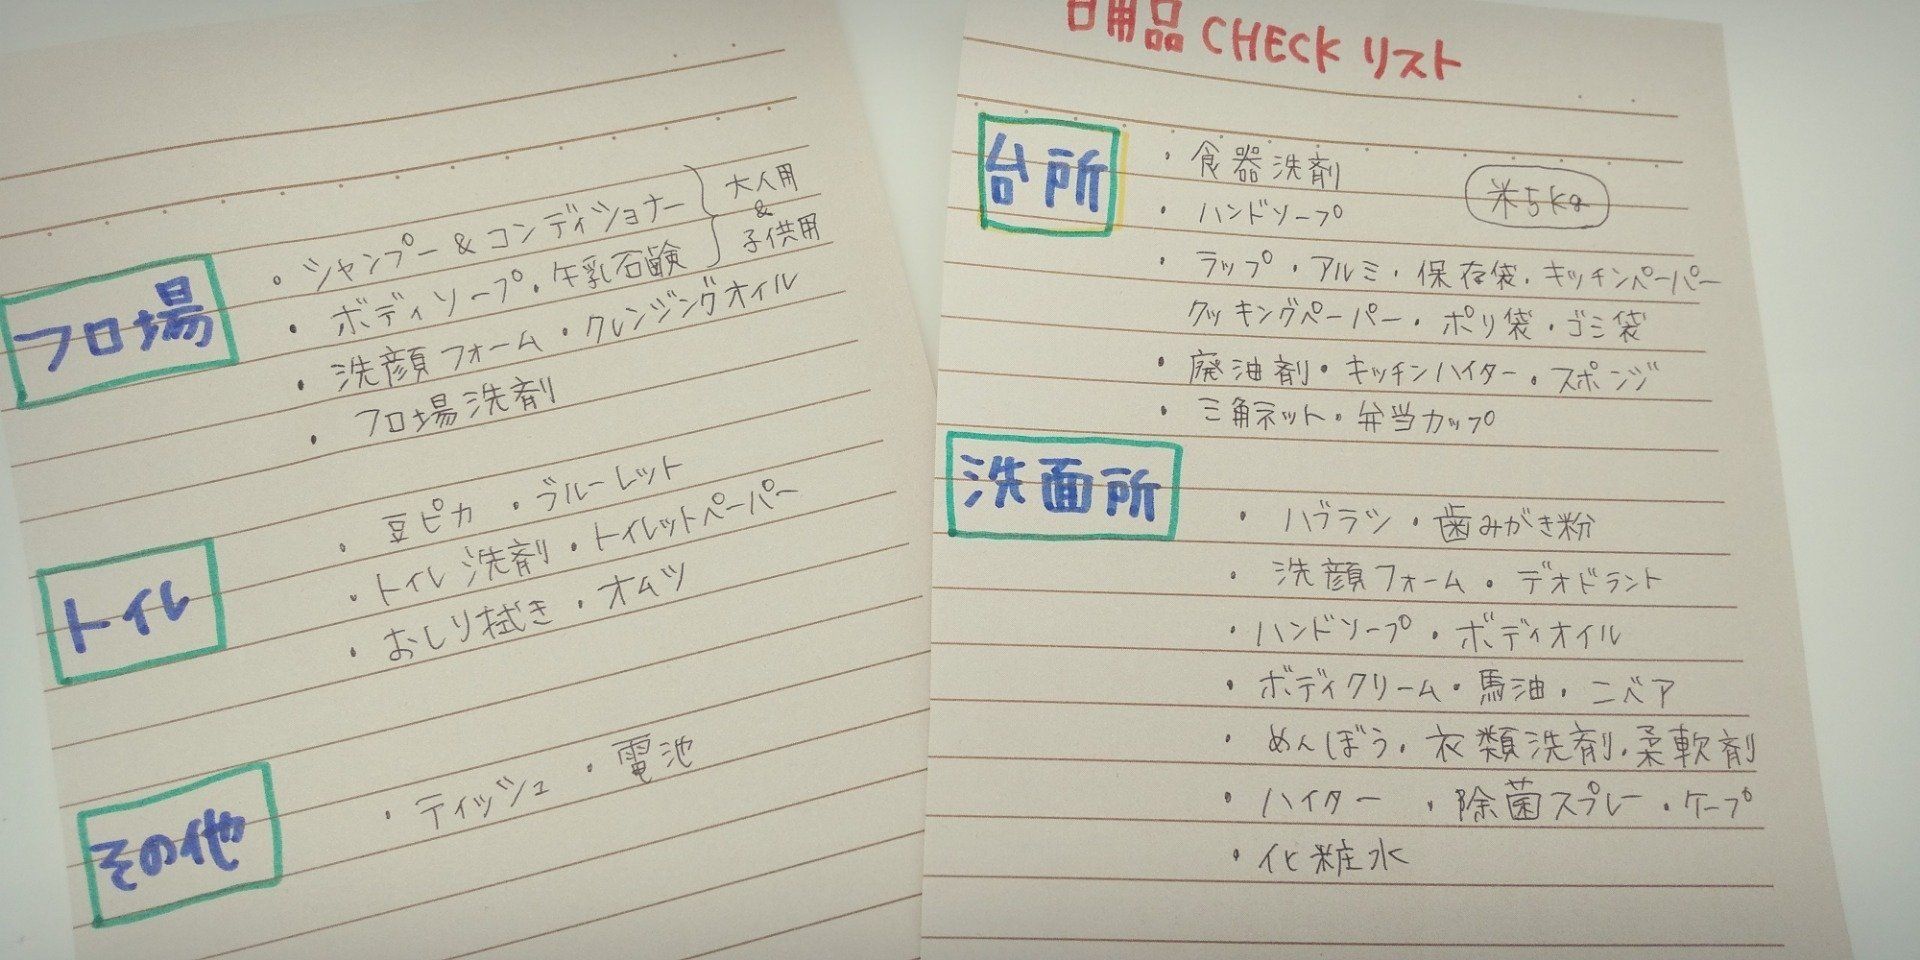 日用品 CHECK リスト
台所
・食器洗剤
米5kg
・ハンドソープ
・ラップ・アルミ・保存袋・キッチンペーパー
クッキングペーパー・ポリ袋・ゴミ袋
・廃油剤・キッチンハイター・スポンジ
・三角ネット・弁当カップ
洗面所
・ハブラシ・歯みがき粉
・洗顔フォーム・デオドラント
・ハンドソープ・ボディオイル
・ボディクリーム・馬油・ニベア
・めんぼう・衣類洗剤・柔軟剤
・ハイター ・除菌スプレー・ケープ
・化粧水
フロ場
・シャンプー&コンディショナー
・ボディソープ・牛乳石鹸
大人用
&
子供用
・洗顔フォーム・クレンジングオイル
・フロ場洗剤
トイレ
・豆ピカ・ブルーレット
・トイレ洗剤・トイレットペーパー
・おしり拭き・オムツ
その他
・ティッシュ・電池